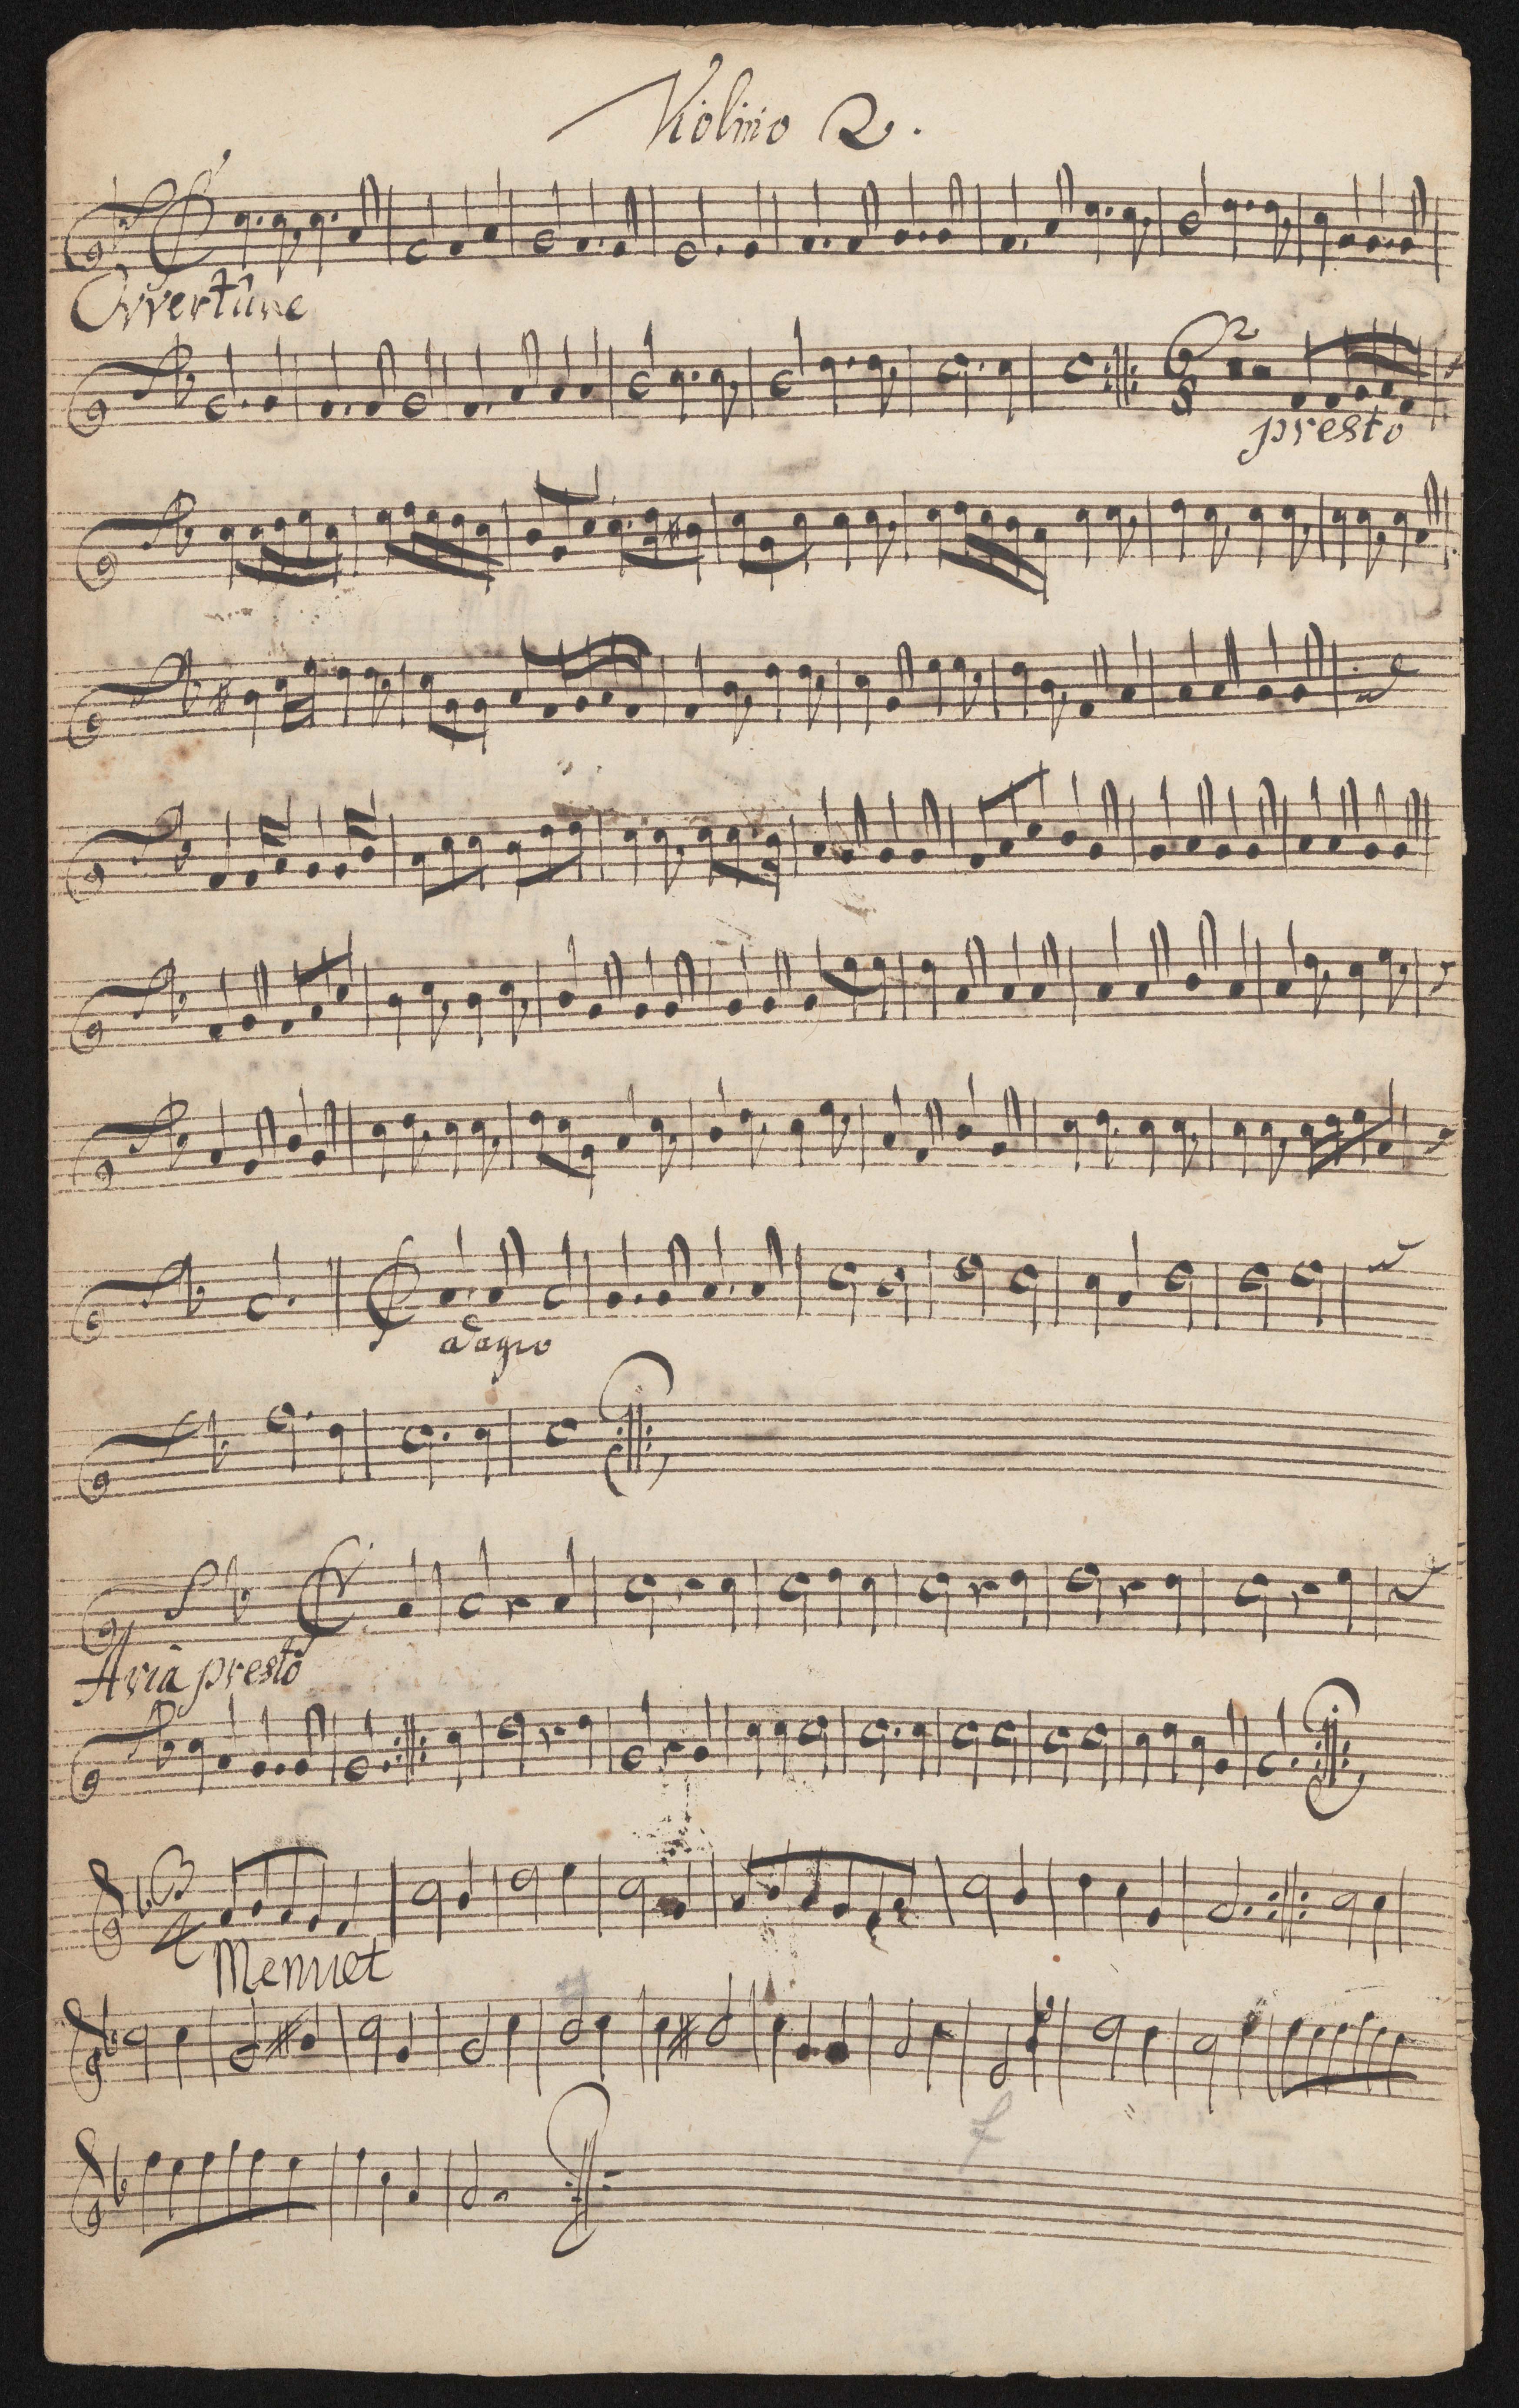 Violino 2.
Ouvertúne
presto
adagio
Aria presto
3
4
Menuet